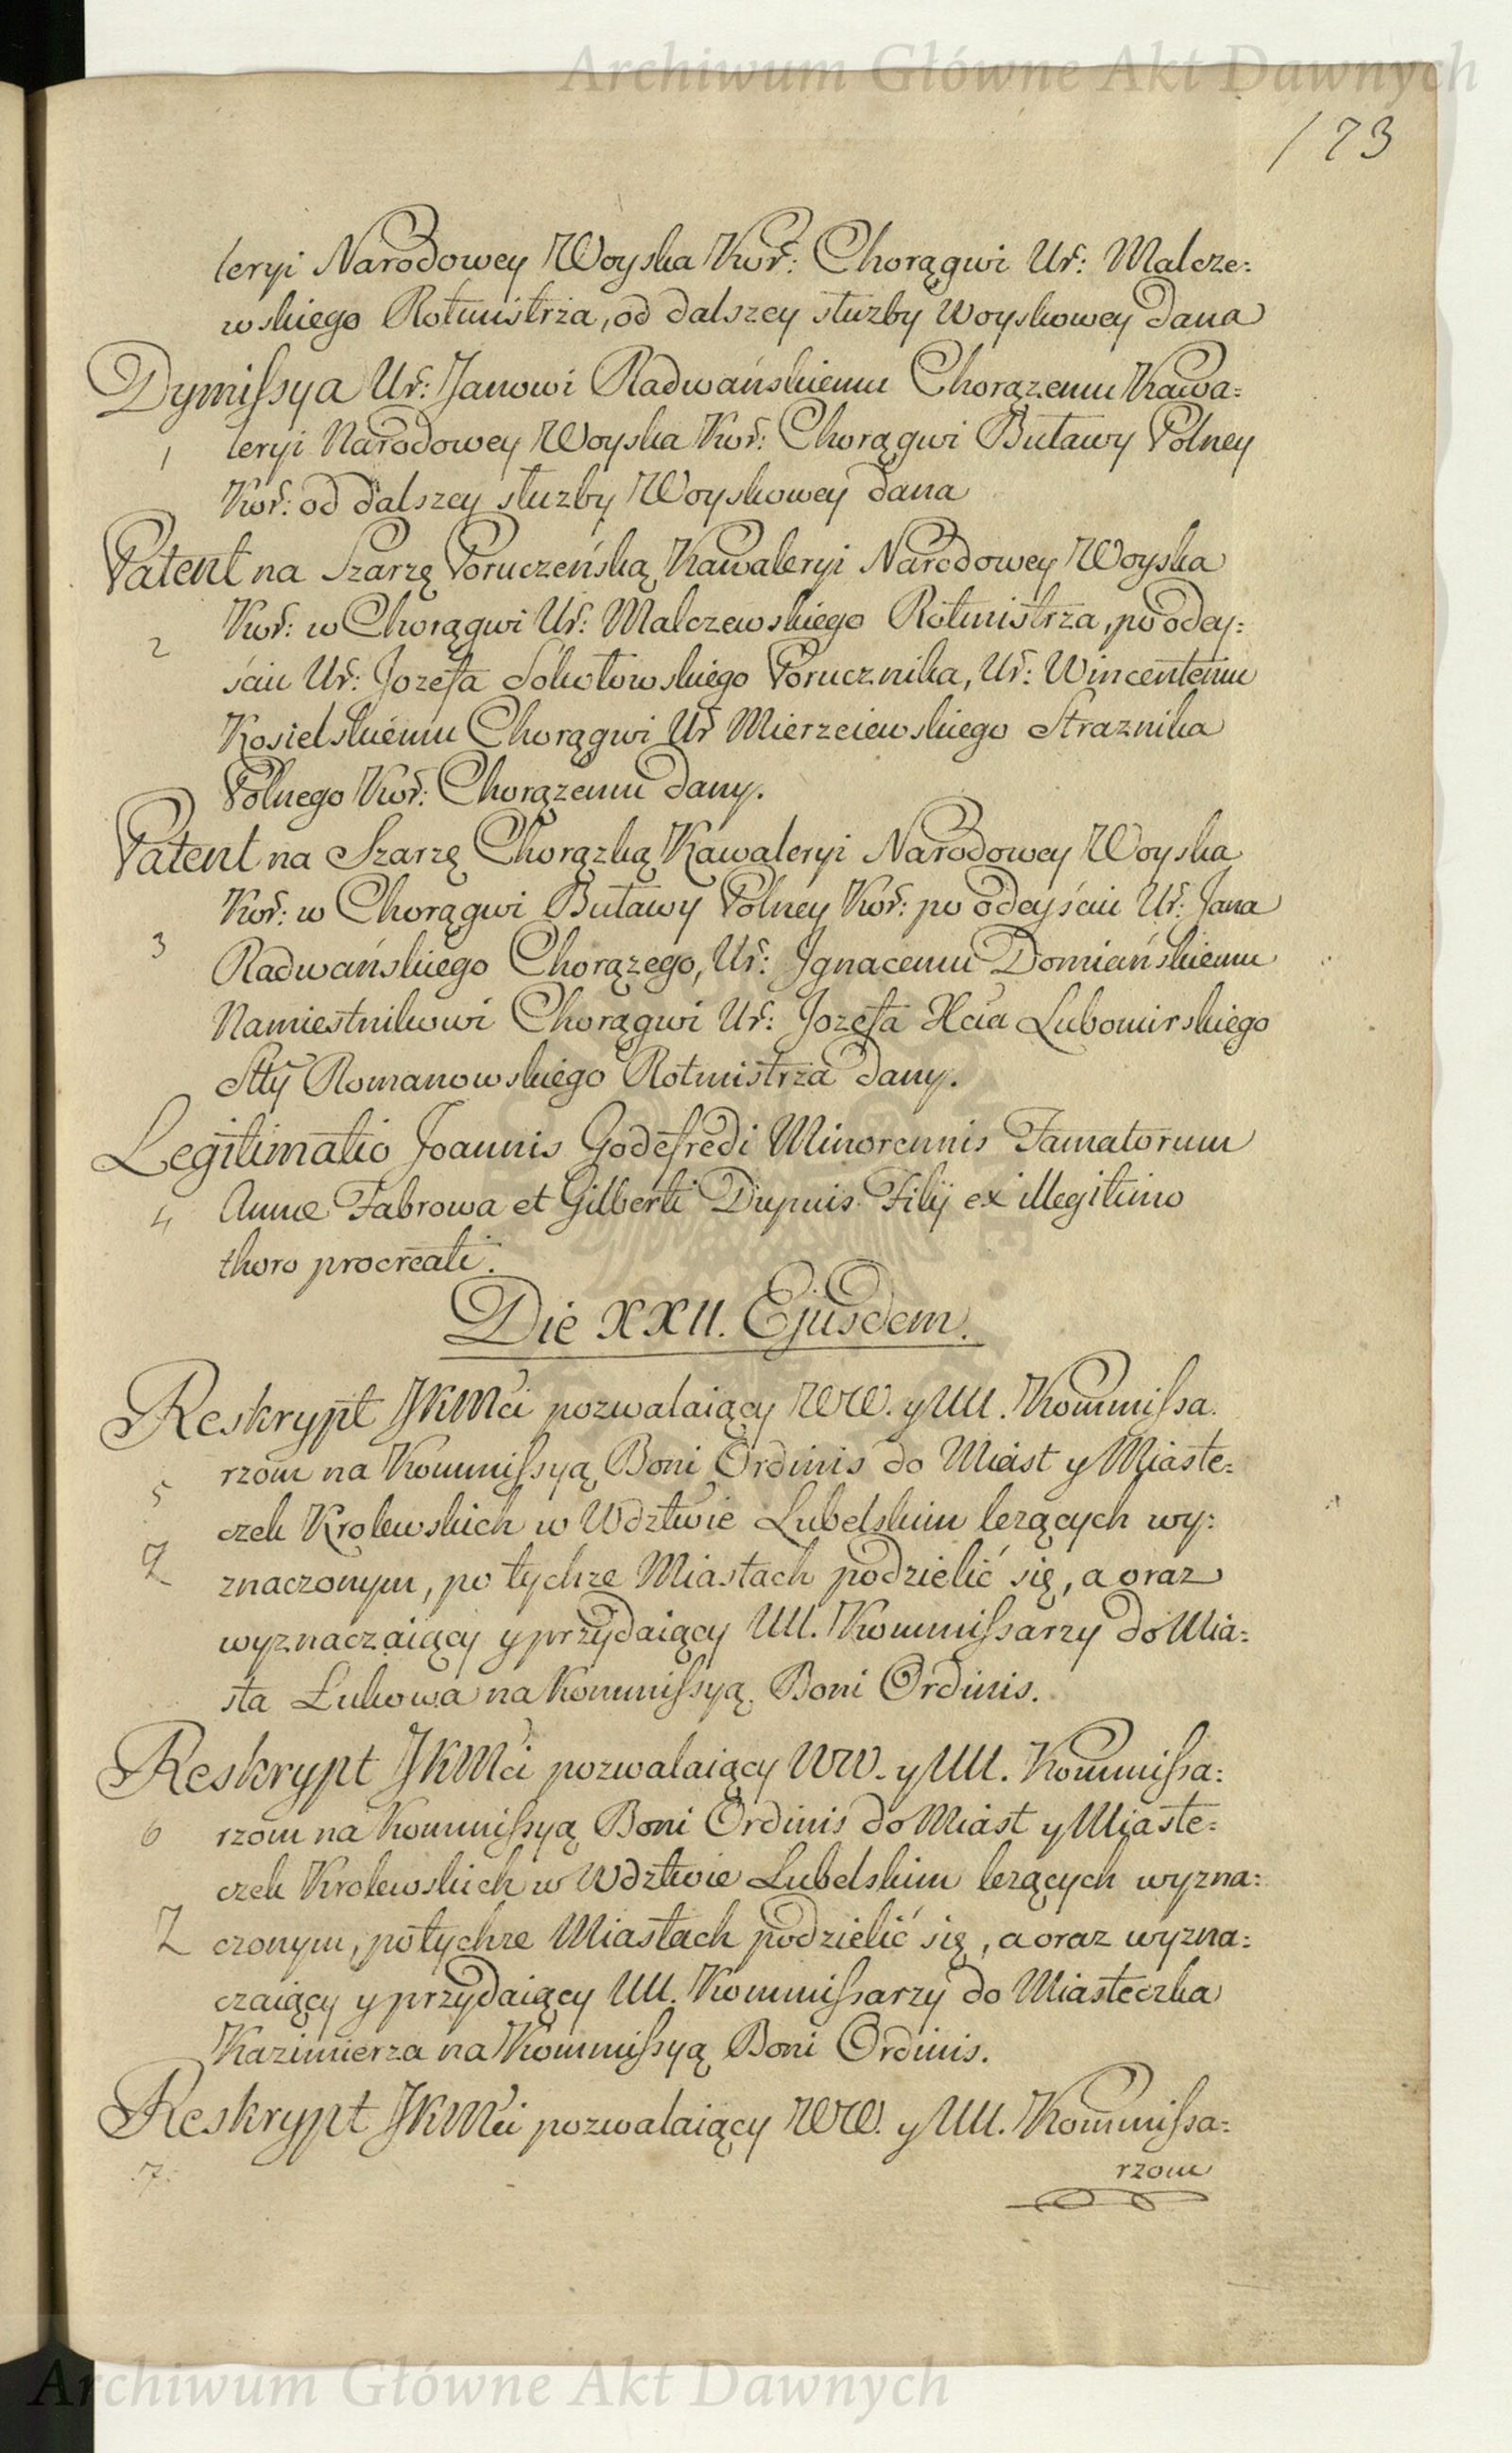 Archiwum Główne Akt Dawnych
173
leryi Narodowey Woyska Kor: Chorągwi Ur: Malcze:
wskiego Rotmistrza, od dalszey służby Woyskowey dana
Dymissya Ur: Janowi Radwańskiemu Chorązemu Kawa:
1 leryi Narodowey Woyska Kor: Chorągwi Buławy Polney
Kor: od dalszey służby Woyskowey dana
Patent na Szarzę Poruczeńską Kawaleryi Narodowey Woyska
Kor: w Chorągwi Ur: Malczewskiego Rotmistrza, po odey:
2
ściu Ur: Jozefa Sokołowskiego Porucznika, Ur: Wincentemu
Kosielskiemu Chorągwi Ur Mierzeiewskiego Straznika
Polnego Kor: Chorązemu dany.
Patent na Szarzę Chorązką Kawaleryi Narodowey Woyska
Kor: w Chorągwi Buławy Polney Kor: po odeyściu Ur: Jana
3 Radwańskiego Chorązego, Ur: Jgnacemu Domiańskiemu
Namiestnikowi Chorągwi Ur: Jozefa Xcia Lubomirskiego
Stty Romanowskiego Rotmistrza dany.
Legitimatio Joannis Godefredi Minorennis Famatorum
4 Annæ Fabrowa et Gilberti Dupuis Filij ex illegitimo
thoro procreati.
Die XXII. Ejusdem.
Reskrypt JKMci pozwalaiący WW. y UU. Kommissa.
rzom na Kommissyą Boni Ordinis do Miast y Miaste:
5
czek Krolewskich w Wdztwie Lubelskim lezących wy:
Z znaczonym, po tychze Miastach podzielić się, a oraz
wyznaczaiący y przydaiący UU. Kommissarzy do Mia:
sta Łukowa na Kommissyą Boni Ordinis.
Reskrypt JKMci pozwalaiący WW. y UU. Kommissa:
6 rzom na Kommissyą Boni Ordinis do Miast y Miaste:
czek Krolewskich w Wdztwie Lubelskim lezących wyzna:
Z czonym, po tychze Miastach podzielić się, a oraz wyzna:
czaiący y przydaiący UU. Kommissarzy do Miasteczka
Kazimierza na Kommissyą Boni Ordinis.
Reskrypt JKMci pozwalaiący WW. y UU. Kommissa:
7. rzom
Archiwum Główne Akt Dawnych